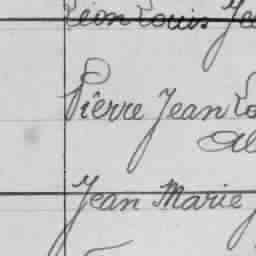 Léon Louis Je
Pierre Jean Lo
Al
Jean Marie